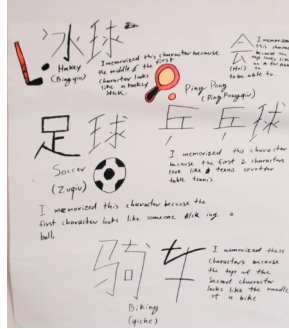 冰球
Hockey
(Bingqiu)
I memorized this character because
the middle of the first
character looks
like a hockey
stick.
会
(Hui)
I memorized
this character
because
to be able to.
Ping Pong
(Ping Pongqiu)
足球
乒乓球
Soccer
(Zuqiu)
I memorized this character
because the first 2 characters
look like a tennis counter
table tennis
I memorized this character because the
first character looks like someone kick ing a
ball.
骑车
Biking
(qiche)
I memorized these
characters because
the top of the
second character
looks like the handle
of a bike